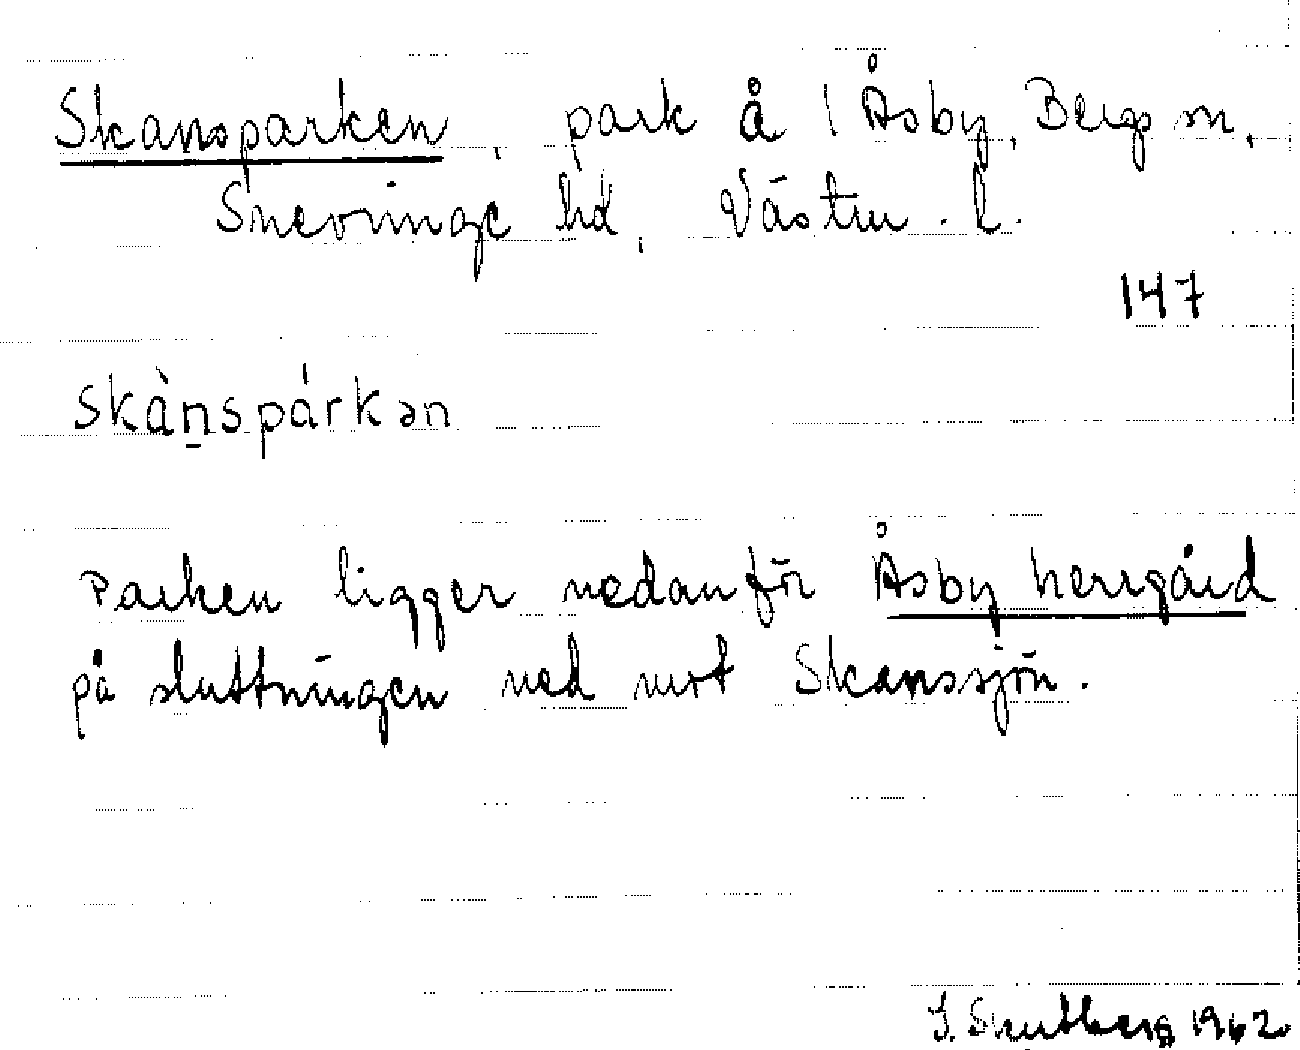 Skansparken, park å 1 Åsby, Bergs sn,
Snevringe hd, Västm. l.
147
skàn̠spárkən
Parken ligger nedanför Åsby herrgård
på sluttningen ned mot Skanssjön.
1962